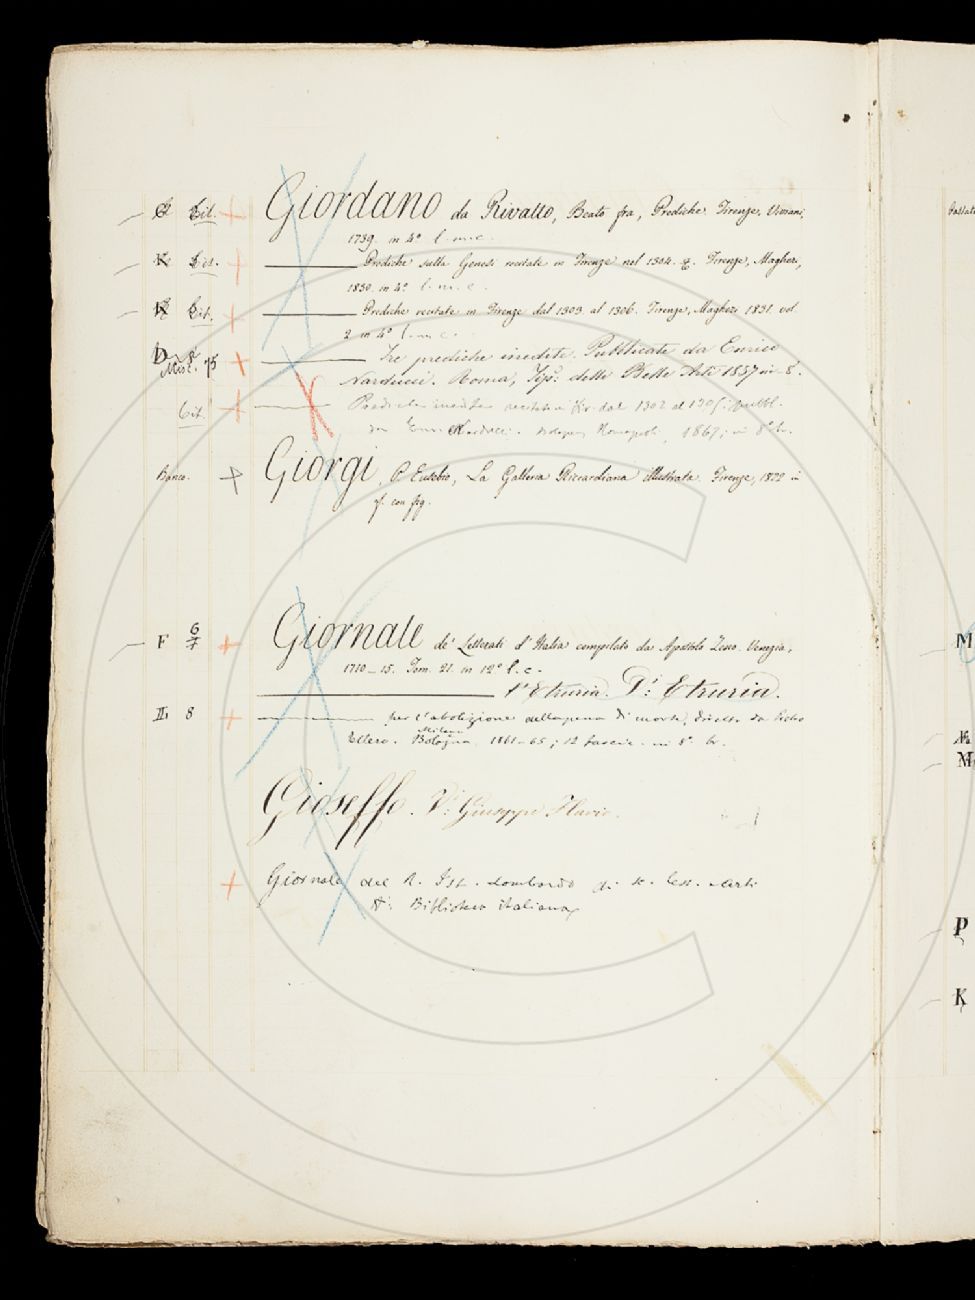 Cit. Giordano da Rivalto, Beato fra, Prediche. Firenze, Viviani,
1739. in 4° l. m. c.
Cit. Prediche sulla Genesi recitate in Firenze nel 1304. Firenze, Magheri,
1830. in 4° l. m. c.
Cit. Prediche recitate in Firenze dal 1303 al 1306. Firenze, Magheri 1831. vol.
2 in 4° l. m. c.
D Tre prediche inedite. Pubblicate da Enrico
Misc. 75 Narducci. Roma, Tip. delle Belle Arti 1857 in 8°.
Cit. Prediche inedite recitate in Fir. dal 1302 al 1305; pubbl.
da Enr. Narducci. Bologna, Romagnoli, 1867; in 8° br.
Banco. Giorgi, P. Eusebio, La Galleria Riccardiana illustrata. Firenze, 1822 in
f. con fig.
F 6/7 Giornale de' Letterati d'Italia compilato da Apostolo Zeno. Venezia,
1710-15. Tom. 21. in 12° l. c.
d'Etruria. V: Etruria.
L 8 per l'abolizione della pena di morte, dirett. da Pietro
Milano
Ellero. Bologna, 1861-65; 12 fascic. in 8° br.
Gioseffo. V: Giuseppe Flavio.
Giornale del R. Ist. Lombardo di sc. lett. e arti
V: Biblioteca italiana
M
K
M
P
K